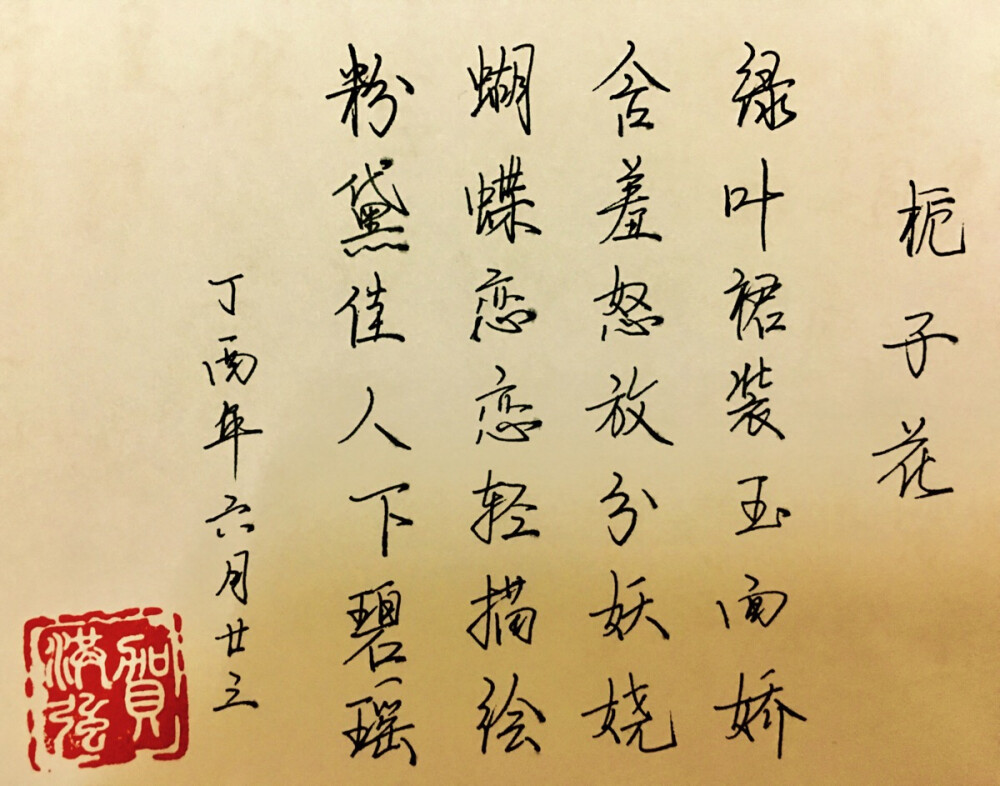 栀子花
绿叶裙装玉面娇
含羞怒放分妖娆
蝴蝶恋恋轻描绘
粉黛佳人下碧瑶
丁酉年六月廿三
贺满强